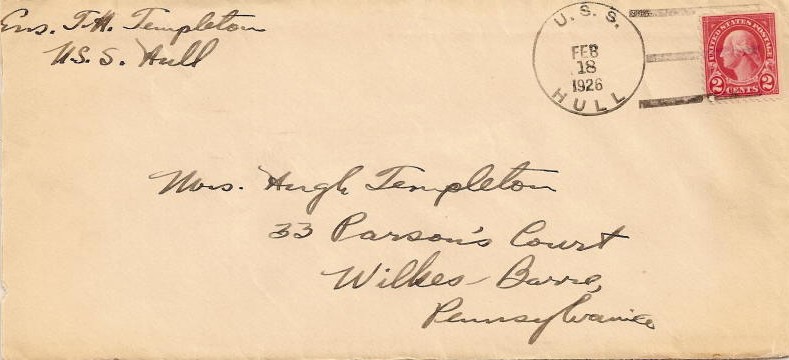 Ens. T. H. Templeton
U.S.S. Hull
U. S. S.
FEB
18
1926
HULL
UNITED STATES POSTAGE
2 CENTS 2
Mrs. Hugh Templeton
33 Parson's Court
Wilkes-Barre,
Pennsylvania